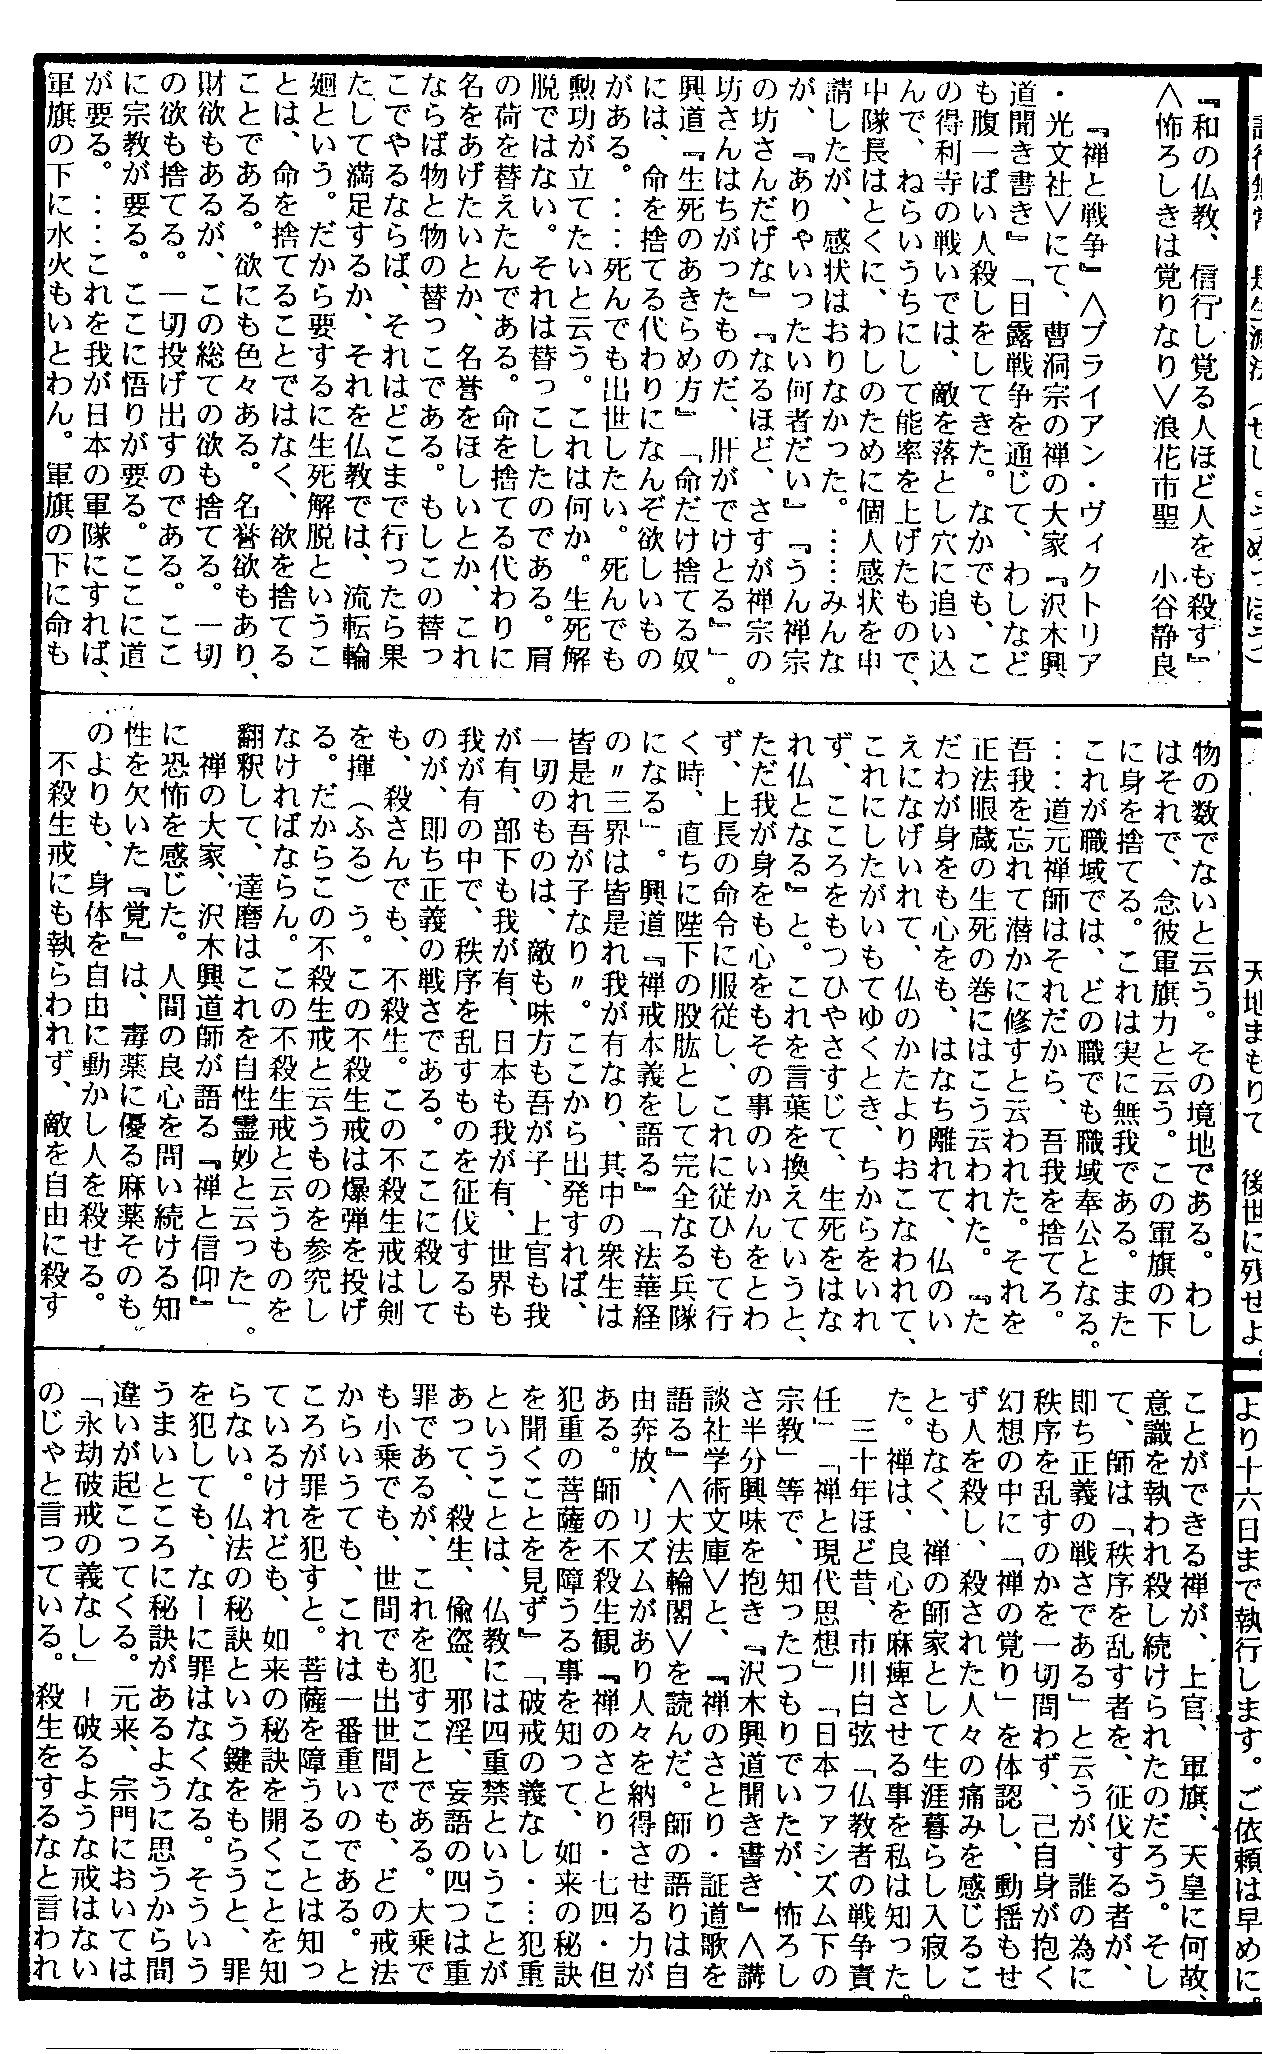 『和の仏教、信行し覚る人ほど人をも殺す』
＜怖ろしきは覚りなり＞浪花市聖　小谷静良
『禅と戦争』＜ブライアン・ヴィクトリア
・光文社＞にて、曹洞宗の禅の大家『沢木興
道聞き書き』「日露戦争を通じて、わしなど
も腹一ぱい人殺しをしてきた。なかでも、こ
の得利寺の戦いでは、敵を落とし穴に追い込
んで、ねらいうちにして能率を上げたもので、
中隊長はとくに、わしのために個人感状を申
請したが、感状はおりなかった。……みんな
が、『ありゃいったい何者だい』『うん禅宗
の坊さんだげな』『なるほど、さすが禅宗の
坊さんはちがったものだ、肝がでけとる』」。
興道『生死のあきらめ方』「命だけ捨てる奴
には、命を捨てる代わりになんぞ欲しいもの
がある。：：死んでも出世したい。死んでも
勲功が立てたいと云う。これは何か。生死解
脱ではない。それは替っこしたのである。肩
の荷を替えたんである。命を捨てる代わりに
名をあげたいとか、名誉をほしいとか、これ
ならば物と物の替っこである。もしこの替っ
こでやるならば、それはどこまで行ったら果
たして満足するか、それを仏教では、流転輪
廻という。だから要するに生死解脱というこ
とは、命を捨てることではなく、欲を捨てる
ことである。欲にも色々ある。名誉欲もあり、
財欲もあるが、この総ての欲も捨てる。一切
の欲も捨てる。一切投げ出すのである。ここ
に宗教が要る。ここに悟りが要る。ここに道
が要る。：：これを我が日本の軍隊にすれば、
軍旗の下に水火もいとわん。軍旗の下に命も
物の数でないと云う。その境地である。わし
はそれで、念彼軍旗力と云う。この軍旗の下
に身を捨てる。これは実に無我である。また
これが職域では、どの職でも職域奉公となる。
：：道元禅師はそれだから、吾我を捨てろ。
吾我を忘れて潜かに修すと云われた。それを
正法眼蔵の生死の巻にはこう云われた。『た
だわが身をも心をも、はなち離れて、仏のい
えになげいれて、仏のかたよりおこなわれて、
これにしたがいもてゆくとき、ちからをいれ
ず、こころをもつひやさずして、生死をはな
れ仏となる』と。これを言葉を換えていうと、
ただ我が身をも心をもその事のいかんをとわ
ず、上長の命令に服従し、これに従ひもて行
く時、直ちに陛下の股肱として完全なる兵隊
になる」。興道『禅戒本義を語る』「法華経
の〃三界は皆是れ我が有なり、其中の衆生は
皆是れ吾が子なり〃。ここから出発すれば、
一切のものは、敵も味方も吾が子、上官も我
が有、部下も我が有、日本も我が有、世界も
我が有の中で、秩序を乱すものを征伐するも
のが、即ち正義の戦さである。ここに殺して
も、殺さんでも、不殺生。この不殺生戒は剣
を揮（ふる）う。この不殺生戒は爆弾を投げ
る。だからこの不殺生戒と云うものを参究し
なければならん。この不殺生戒と云うものを
翻釈して、達磨はこれを自性霊妙と云った」。
禅の大家、沢木興道師が語る『禅と信仰』
に恐怖を感じた。人間の良心を問い続ける知
性を欠いた『覚』は、毒薬に優る麻薬そのも
のよりも、身体を自由に動かし人を殺せる。
不殺生戒にも執らわれず、敵を自由に殺す
天地まもりて　後世に残せよ。
より十六日まで執行します。ご依頼は早めに。
ことができる禅が、上官、軍旗、天皇に何故、
意識を執われ殺し続けられたのだろう。そし
て、師は「秩序を乱す者を、征伐する者が、
即ち正義の戦さである」と云うが、誰の為に
秩序を乱すのかを一切問わず、己自身が抱く
幻想の中に「禅の覚り」を体認し、動揺もせ
ず人を殺し、殺された人々の痛みを感じるこ
ともなく、禅の師家として生涯暮らし入寂し
た。禅は、良心を麻痺させる事を私は知った。
三十年ほど昔、市川白弦「仏教者の戦争責
任」「禅と現代思想」「日本ファシズム下の
宗教」等で、知ったつもりでいたが、怖ろし
さ半分興味を抱き『沢木興道聞き書き』＜講
談社学術文庫＞と、『禅のさとり・証道歌を
語る』＜大法輪閣＞を読んだ。師の語りは自
由奔放、リズムがあり人々を納得させる力が
ある。師の不殺生観『禅のさとり・七四・但
犯重の菩薩を障うる事を知って、如来の秘訣
を聞くことを見ず』「破戒の義なし・…犯重
ということは、仏教には四重禁ということが
あって、殺生、偸盗、邪淫、妄語の四つは重
罪であるが、これを犯すことである。大乗で
も小乗でも、世間でも出世間でも、どの戒法
からいうても、これは一番重いのである。と
ころが罪を犯すと。菩薩を障うることは知っ
ているけれども、如来の秘訣を開くことを知
らない。仏法の秘訣という鍵をもらうと、罪
を犯しても、なーに罪はなくなる。そういう
うまいところに秘訣があるように思うから間
違いが起こってくる。元来、宗門においては
「永劫破戒の義なし」ー破るような戒はない
のじゃと言っている。殺生をするなと言われ